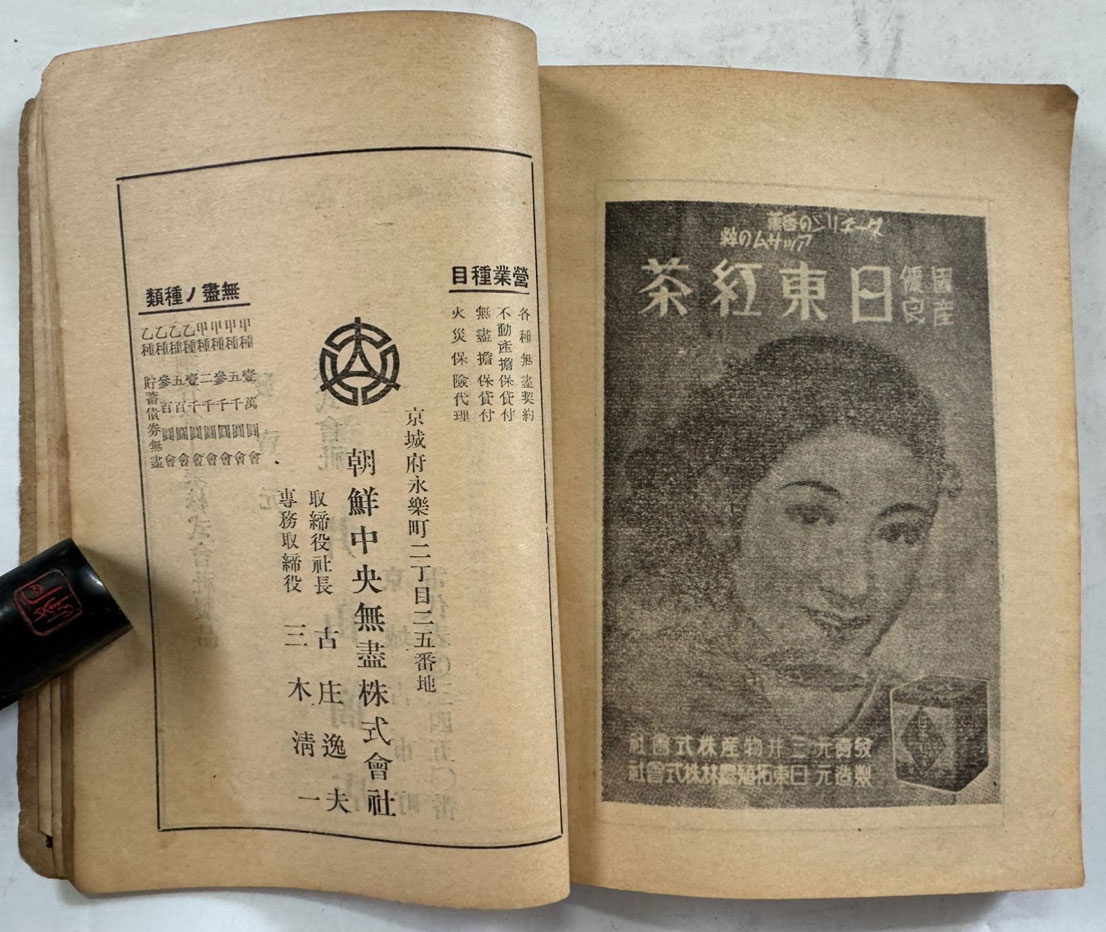 ダーヂリンの香薫
アッサムの粹
國産
優良
日東紅茶
發賣元 三井物産株式會社
製造元 日東拓殖農林株式會社
營業種目
各種無盡契約
不動產擔保貸付
無盡擔保貸付
火災保險代理
京城府永樂町二丁目二五番地
朝鮮中央無盡株式會社
取締役社長 古庄逸夫
專務取締役 三木淸一
無盡ノ種類
甲種 壹萬圓會
甲種 五千圓會
甲種 參千圓會
甲種 二千圓會
乙種 壹千圓會
乙種 五百圓會
乙種 參百圓會
乙種 貯蓄債券無盡